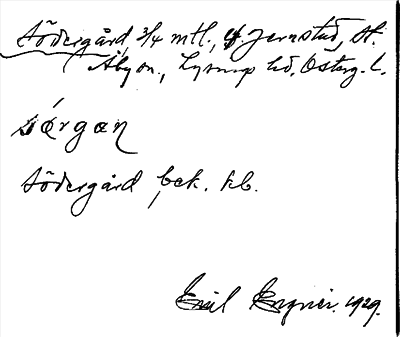 Södergård, 3/4 mtl., Jernstad, St.
Åby sn., Lysings hd, Österg. l.
sörgaɳ
Södergård bek. kb.
Emil Engnér. 1929.